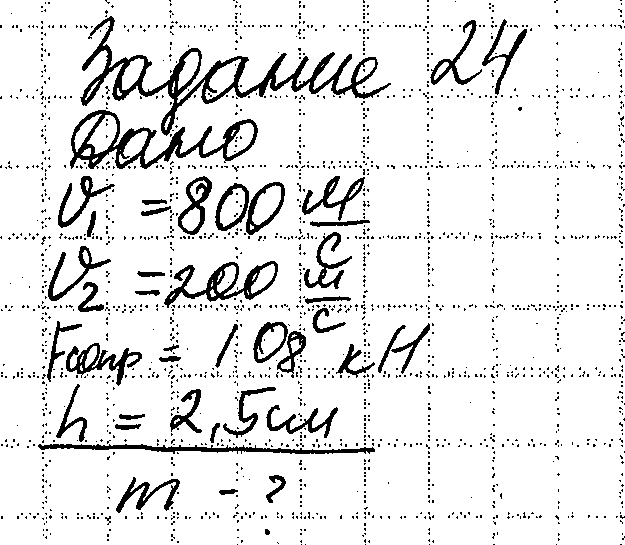 Задание 24
Дано
V₁ = 800 м/с
V₂ = 200 м/с
Fсопр = 108 кН
h = 2,5 см
m - ?